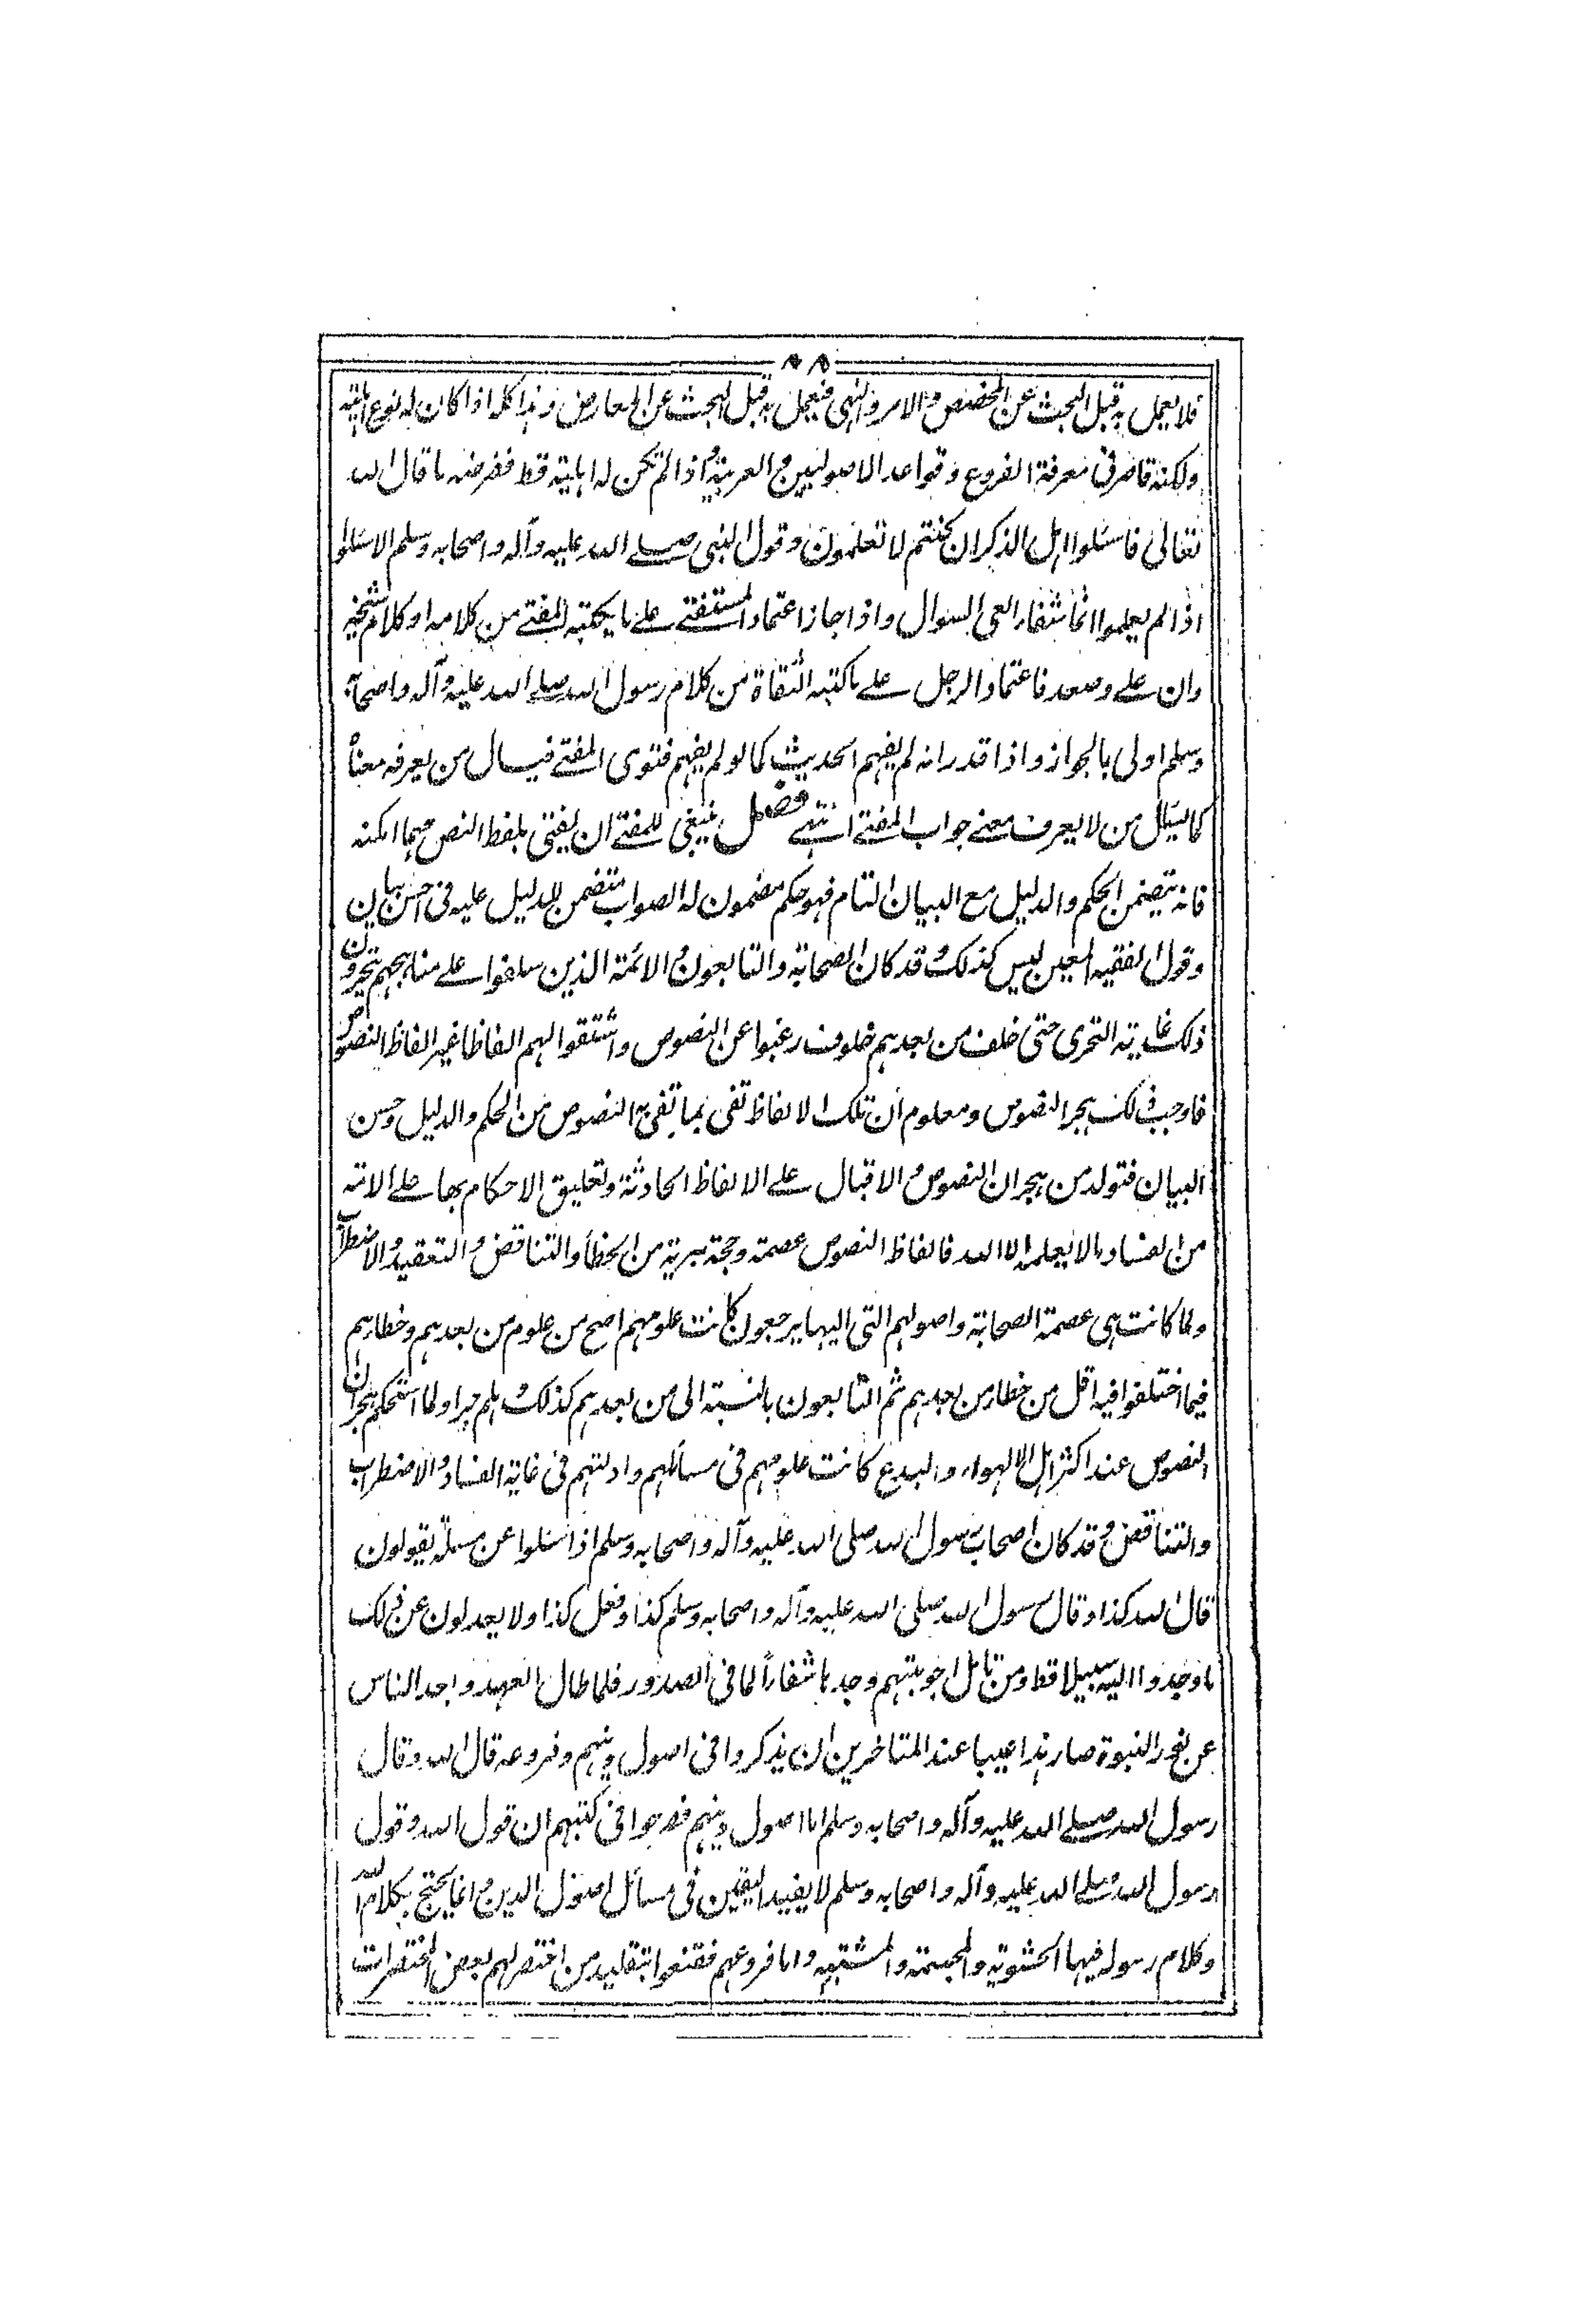 فلا يعمل به قبل البحث عن المخصص والامر والنهى فيعمل به قبل البحث عن المعارض وهذا كله اذا كان له نوع اهلية
ولكنه قاصر فى معرفة الفروع وقواعد الاصوليين والعربية واذا لم تكن له اهلية قط ففرضه ما قال الله
تعالى فاسئلوا اهل الذكر ان كنتم لا تعلمون وقول النبى صلى الله عليه وآله واصحابه وسلم الا سئلوا
اذا لم يعلموا انما شفاء العى السوال واذا جاز اعتماد المستفتے علے ما يكتبه المفتے من كلامه او كلام شيخه
وان علے وصعد فاعتماد الرجل علے ما كتبه الثقاة من كلام رسول الله صلے الله عليه وآله واصحابه
وسلم اولى بالجواز واذا قدر انه لم يفهم الحديث كما لو لم يفهم فتوى المفتے فيسال من يعرفه معناه
كما يسئل من لا يعرف معنے جواب المفتے انتهے فصل ينبغى للمفتے ان يفتى بلفظ النص مهما امكنه
فانه يتضمن الحكم والدليل مع البيان التام فهو حكم مضمون له الصواب متضمن للدليل عليه فى احسن بيان
وقول الفقيه المعين ليس كذلك وقد كان الصحابة والتابعون والائمة الذين سلفوا علے مناهجهم يتحرون
ذلك غاية التحرى حتى خلف من بعدهم خلوف رغبوا عن النصوص واشتقوا لهم الفاظا غير الفاظ النصوص
فاوجب ذلك هجر النصوص ومعلوم ان تلك الالفاظ تفى بما تفى به النصوص من الحكم والدليل وحسن
البيان فتولد من هجران النصوص والاقبال علے الالفاظ الحادثة وتعليق الاحكام بها علے الامة
من الفساد ما لا يعلمه الا الله فالفاظ النصوص عصمة وحجة برية من الخطأ والتناقض والتعقيد والاضطراب
ولما كانت هى عصمة الصحابة واصولهم التى اليها يرجعون كانت علومهم اصح من علوم من بعدهم وخطاءهم
فيما اختلفوا فيه اقل من خطاء من بعدهم ثم التابعون بالنسبة الى من بعدهم كذلك وهلم جرا ولما استحكم هجران
النصوص عند اكثر اهل الاهواء والبدع كانت علومهم فى مسائلهم وادلتهم فى غاية الفساد والاضطراب
والتناقض وقد كان اصحاب رسول الله صلى الله عليه وآله واصحابه وسلم اذا سئلوا عن مسئلة يقولون
قال الله كذا وقال رسول الله صلى الله عليه وآله واصحابه وسلم كذا وفعل كذا ولا يعدلون عن ذلك
ما وجدوا اليه سبيلا قط ومن تامل اجوبتهم وجدها شفاءً لما فى الصدور فلما طال العهد وابعد الناس
عن نور النبوة صار هذا عيبا عند المتاخرين ان يذكروا فى اصول دينهم وفروعه قال الله وقال
رسول الله صلے الله عليه وآله واصحابه وسلم اما اصول دينهم فصرحوا فى كتبهم ان قول الله وقول
رسول الله صلے الله عليه وآله واصحابه وسلم لا يفيد اليقين فى مسائل اصول الدين وانما يحتج بكلام الله
وكلام رسوله فيها الحشوية والمجسمة والمشبهة واما فروعهم فقنعوا بتقليد من اختصر لهم بعض المختصرات